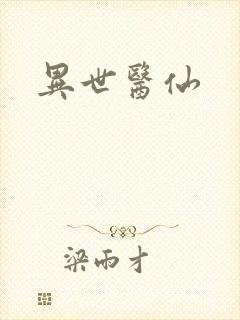 異世醫仙
梁雨才